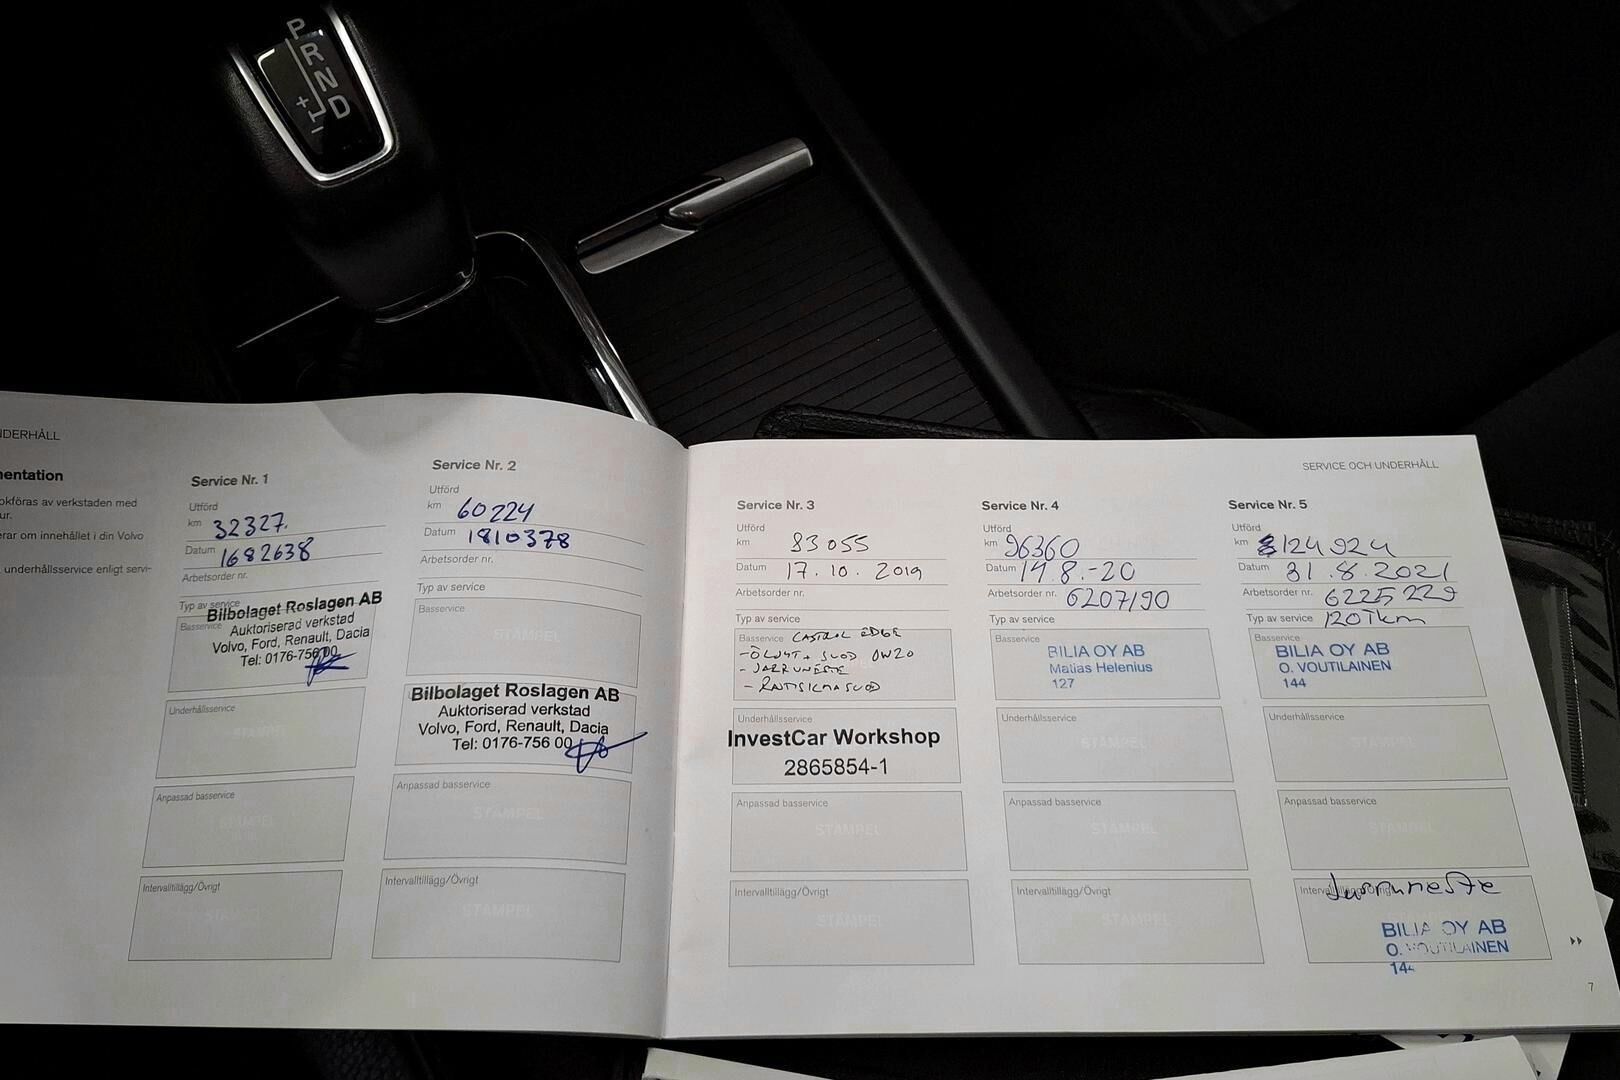 P
R
N
D
+
−
NDERHÅLL
nentation
okföras av verkstaden med
ur.
erar om innehållet i din Volvo
underhållsservice enligt servi-
Service Nr. 1
Utförd
km 32327.
Datum 1682638
Arbetsorder nr.
Typ av service
Basservice
Bilbolaget Roslagen AB
Auktoriserad verkstad
Volvo, Ford, Renault, Dacia
Tel: 0176-756 00
Underhållsservice
STÄMPEL
Anpassad basservice
STÄMPEL
Intervalltillägg/Övrigt
Service Nr. 2
Utförd
km 60224
Datum 1810378
Arbetsorder nr.
Typ av service
Basservice
STÄMPEL
Bilbolaget Roslagen AB
Auktoriserad verkstad
Volvo, Ford, Renault, Dacia
Tel: 0176-756 00
Anpassad basservice
STÄMPEL
Intervalltillägg/Övrigt
STÄMPEL
SERVICE OCH UNDERHÅLL
Service Nr. 3
Utförd
km 83055
Datum 17.10. 2019
Arbetsorder nr.
Typ av service
Basservice CASTROL EDGE
-ÖLJYT + SUOD 0W20
- JARRUNESTE
- RAITISILMASUOD
Underhållsservice
InvestCar Workshop
2865854-1
Anpassad basservice
STÄMPEL
Intervalltillägg/Övrigt
STÄMPEL
Service Nr. 4
Utförd
km 96360
Datum 14.8.-20
Arbetsorder nr. 6207190
Typ av service
Basservice
BILIA OY AB
Matias Helenius
127
Underhållsservice
STÄMPEL
Anpassad basservice
STÄMPEL
Intervalltillägg/Övrigt
STÄMPEL
Service Nr. 5
Utförd
km 124924
Datum 31.8.2021
Arbetsorder nr. 6225229
Typ av service 120Tkm
Basservice
BILIA OY AB
O. VOUTILAINEN
144
Underhållsservice
STÄMPEL
Anpassad basservice
STÄMPEL
Intervalltillägg/Övrigt
Jarruneste
BILIA OY AB
O. VOUTILAINEN
144
7